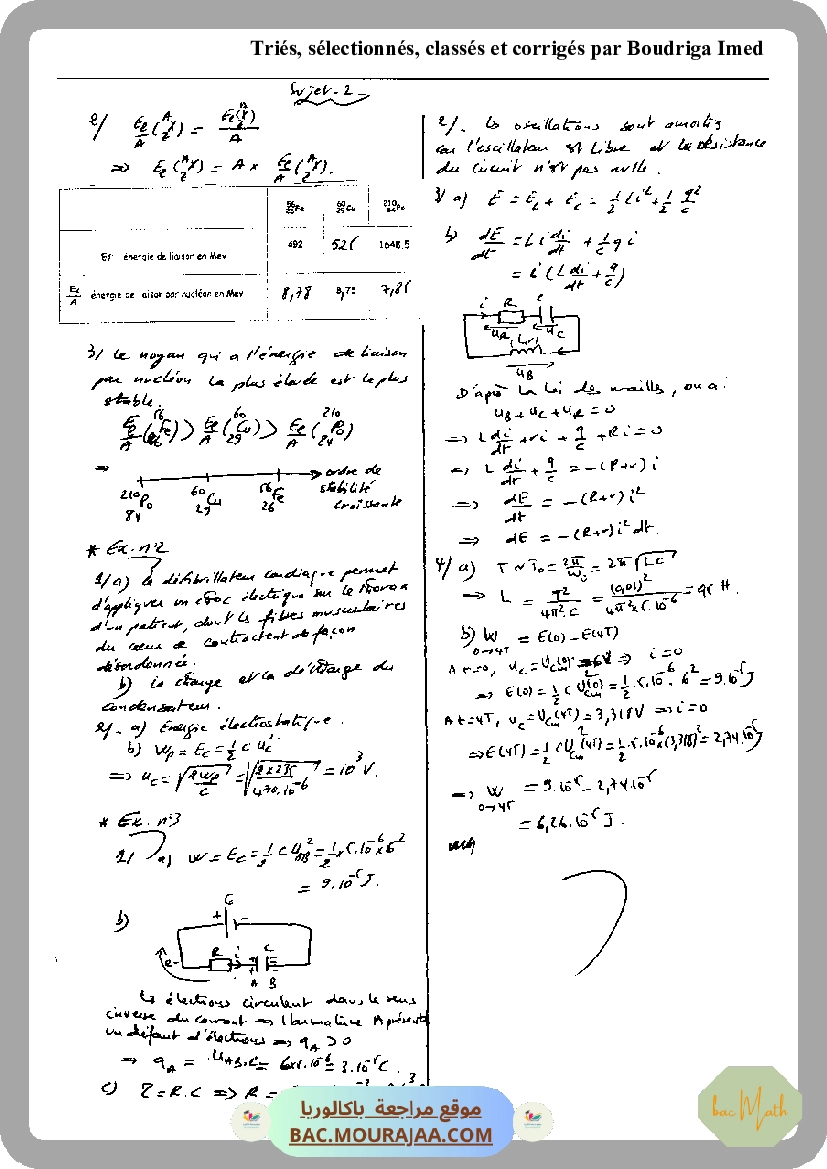 Triés, sélectionnés, classés et corrigés par Boudriga Imed
Sujet-2
2/ El/A (A Z X) = El(A Z X)/A
=> El (A Z X) = A x El/A (A Z X).
56 26 Fe 60 29 Cu 210 84 Po
El énergie de liaison en Mev 492 1648,5
El/A énergie de liaison par nucléon en Mev 8,78
3/ Le noyau qui a l'énergie de liaison
par nucléon la plus élevée est le plus
stable.
El/A (56 26 Fe) > El/A (60 29 Cu) > El/A (210 84 Po)
=> ordre de
stabilité
croissante
210 84 Po 60 29 Cu 56 26 Fe
* Ex. n°2
1/a) le défibrillateur cardiaque permet
d'appliquer un choc électrique sur le thorax
d'un patient, dont les fibres musculaires
du cœur se contractent de façon
désordonnée.
b) la charge et la décharge du
condensateur.
2/. a) Energie électrostatique.
b) Wp = Ec = 1/2 c uc²
=> uc = √(2 wp/c) = = 10³ V.
* Ex. n°3
2/ a) W = Ec = 1/2 c U²AB = 1/2 x 5.10⁻⁶ x 6²
= 9.10⁻⁵ J.
b)
G
+ -
R i C
e-
A B
Les électrons circulent dans le sens
inverse du courant => l'armature A présente
un défaut d'électrons => qA > 0
=> qA = UAB.C = 6x5.10⁻⁶ = 3.10⁻⁵ C.
c) τ = R.C => R =
2/. Les oscillations sont amorties
car l'oscillateur est libre et la résistance
du circuit n'est pas nulle.
3/ a) E = EL + Ec = 1/2 Li² + 1/2 q²/c
b) dE/dt = Li di/dt + 1/c q i
= i (L di/dt + q/c)
i R C
uR uC
(L,r)
uB
D'après la loi des mailles, on a :
uB + uc + uR = 0
=> L di/dt + ri + q/c + Ri = 0
=> L di/dt + q/c = -(R+r) i
=> dE/dt = -(R+r) i²
=> dE = -(R+r) i² dt.
4/ a) T ≈ T0 = 2π/ω0 = 2π √LC
=> L = T²/4π².C = (0,01)²/4π² x 5.10⁻⁶ = 0,5 H.
b) W 0→4T = E(0) - E(4T)
A t=0, uc = Ucm(0) = 6V => i = 0
=> E(0) = 1/2 c U²cm(0) = 1/2 . 5.10⁻⁶ . 6² = 9.10⁻⁵ J
A t=4T, uc = Ucm(4T) = 3,318 V => i = 0
=> E(4T) = 1/2 c U²cm(4T) = 1/2 . 5.10⁻⁶ x (3,318)² = 2,74.10⁻⁵ J
=> W 0→4T = 9.10⁻⁵ - 2,74.10⁻⁵
= 6,26.10⁻⁵ J.
موقع مراجعة باكالوريا
BAC.MOURAJAA.COM
bac Math